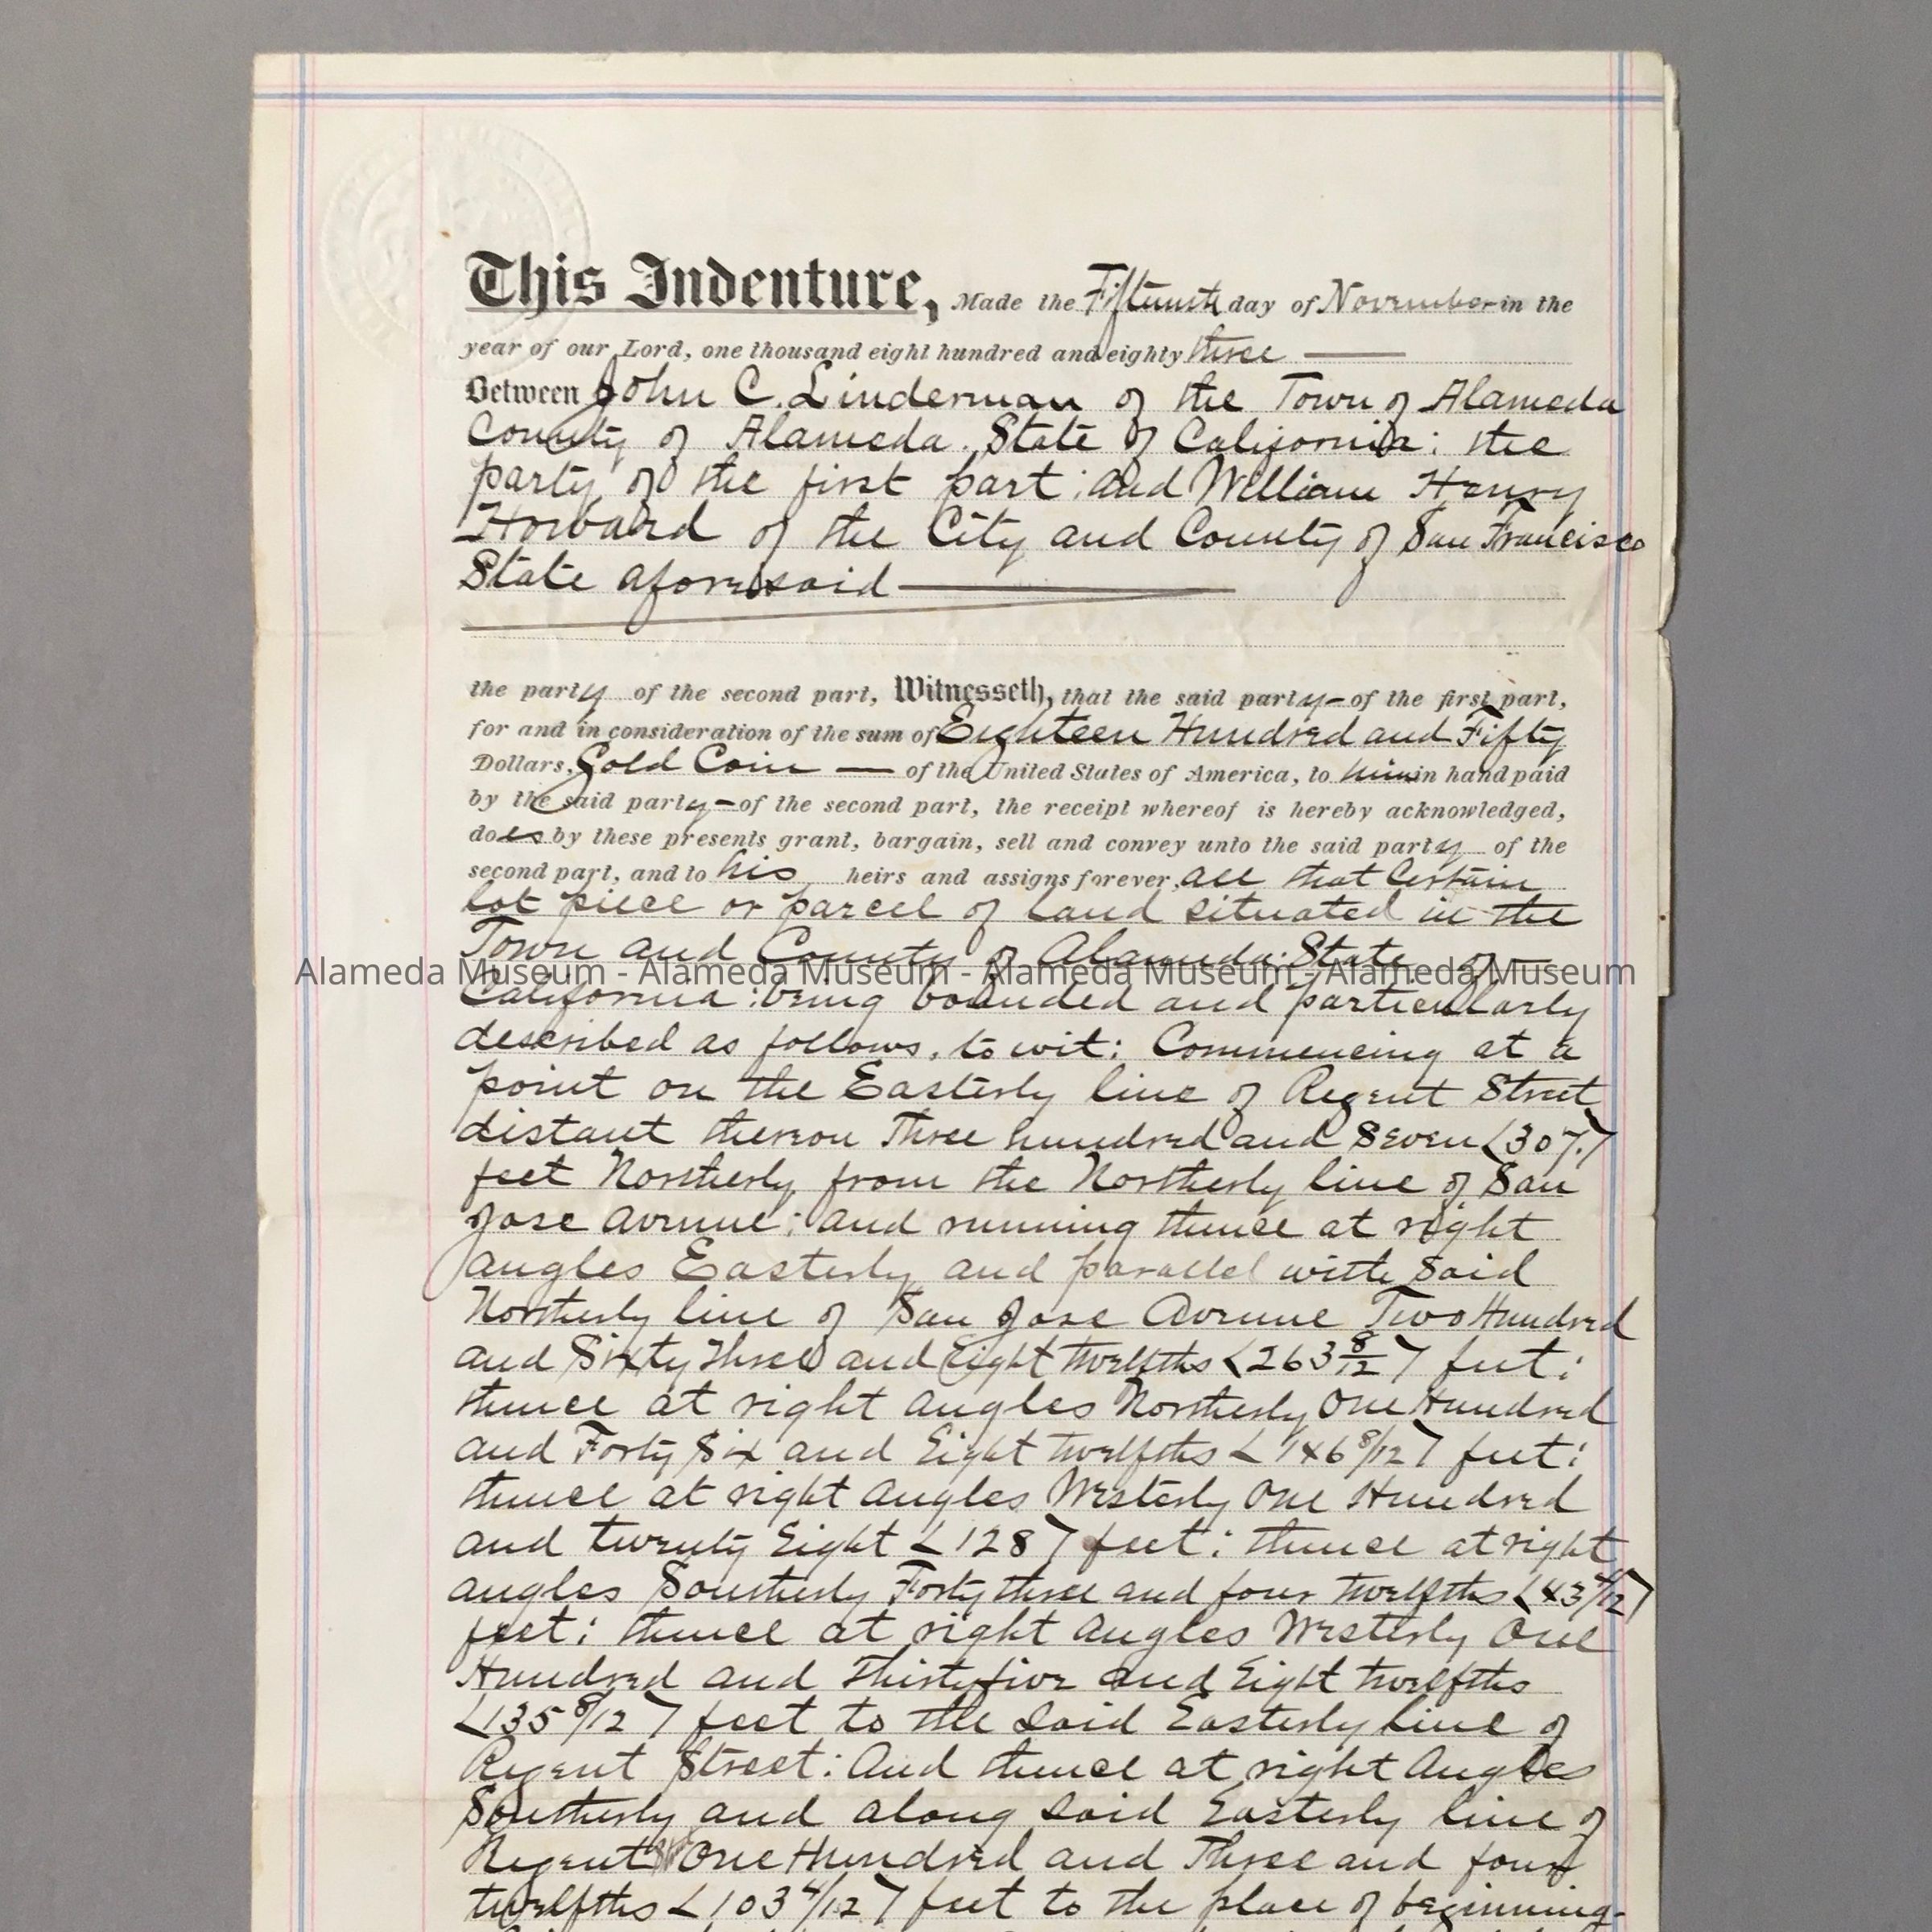 This Indenture, Made the Fifteenth day of November in the
year of our Lord, one thousand eight hundred and eighty three
Between John C. Linderman of the Town of Alameda
County of Alameda. State of California: the
party of the first part: and William Henry
Howard of the City and County of San Francisco
State aforesaid
the party of the second part, Witnesseth, that the said party of the first part,
for and in consideration of the sum of Eighteen Hundred and Fifty
Dollars, Gold Coin — of the United States of America, to him in hand paid
by the said party of the second part, the receipt whereof is hereby acknowledged,
does by these presents grant, bargain, sell and convey unto the said party of the
second part, and to his heirs and assigns forever, all that Certain
lot piece or parcel of land situated in the
Town and County of Alameda: State of
Alameda Museum - Alameda Museum - Alameda Museum - Alameda Museum
California: being bounded and particularly
described as follows, to wit: Commencing at a
point on the Easterly line of Regent Street
distant thereon Three hundred and Seven <307.>
feet Northerly from the Northerly line of San
Jose Avenue: and running thence at right
angles Easterly and parallel with said
Northerly line of San Jose Avenue Two Hundred
and Sixty Three and Eight twelfths <263 8/12> feet:
thence at right angles Northerly One Hundred
and Forty Six and Eight twelfths <146 8/12> feet:
thence at right angles Westerly One Hundred
and twenty Eight <128> feet: thence at right
angles Southerly Forty three and four twelfths <43 4/12>
feet: thence at right angles Westerly One
Hundred and Thirty five and Eight twelfths
<135 8/12> feet to the said Easterly line of
Regent Street: And thence at right angles
Southerly and along said Easterly line of
Regent One Hundred and Three and four
twelfths <103 4/12> feet to the place of beginning.